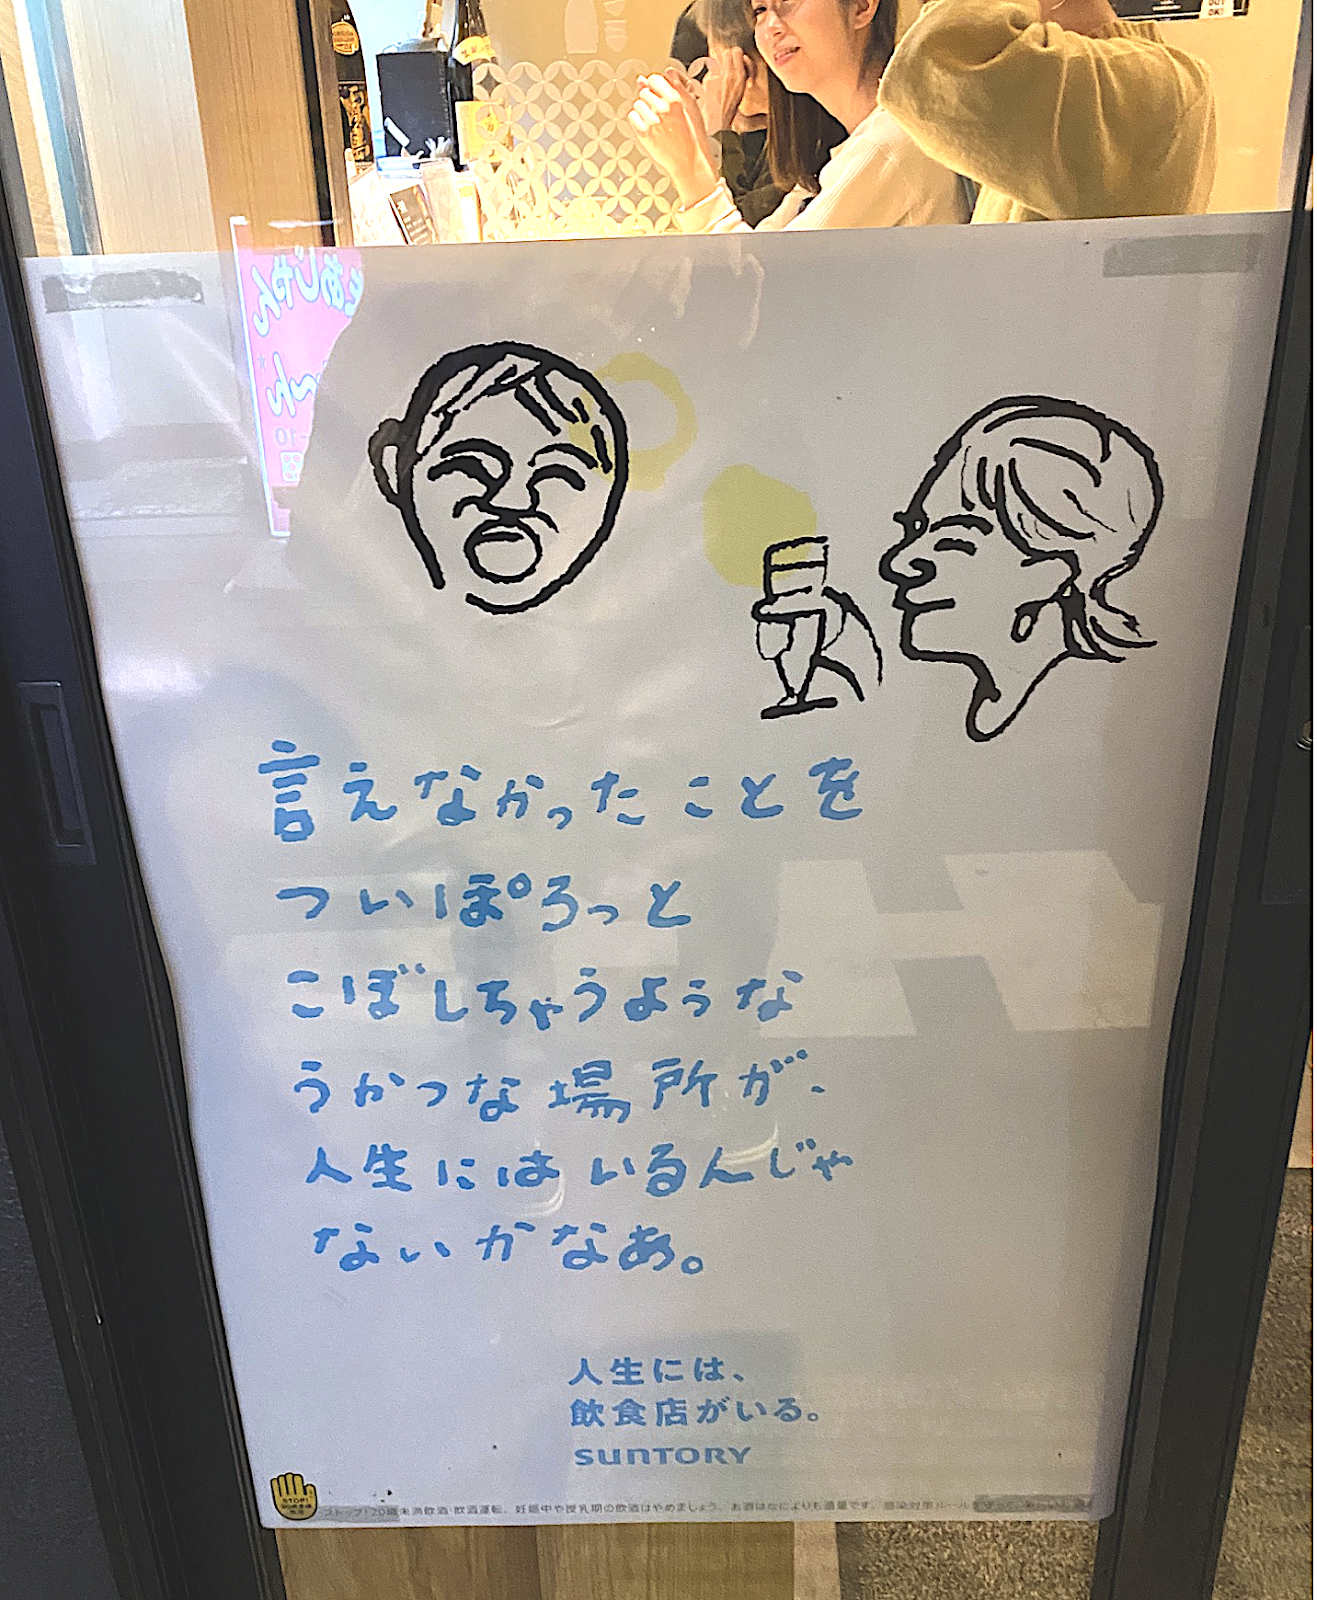 言えなかったことを
ついぽろっと
こぼしちゃうような
うかつな場所が、
人生にはいるんじゃ
ないかなあ。
人生には、
飲食店がいる。
SUNTORY
STOP!
ストップ!20歳未満飲酒・飲酒運転。妊娠中や授乳期の飲酒はやめましょう。お酒はなによりも適量です。